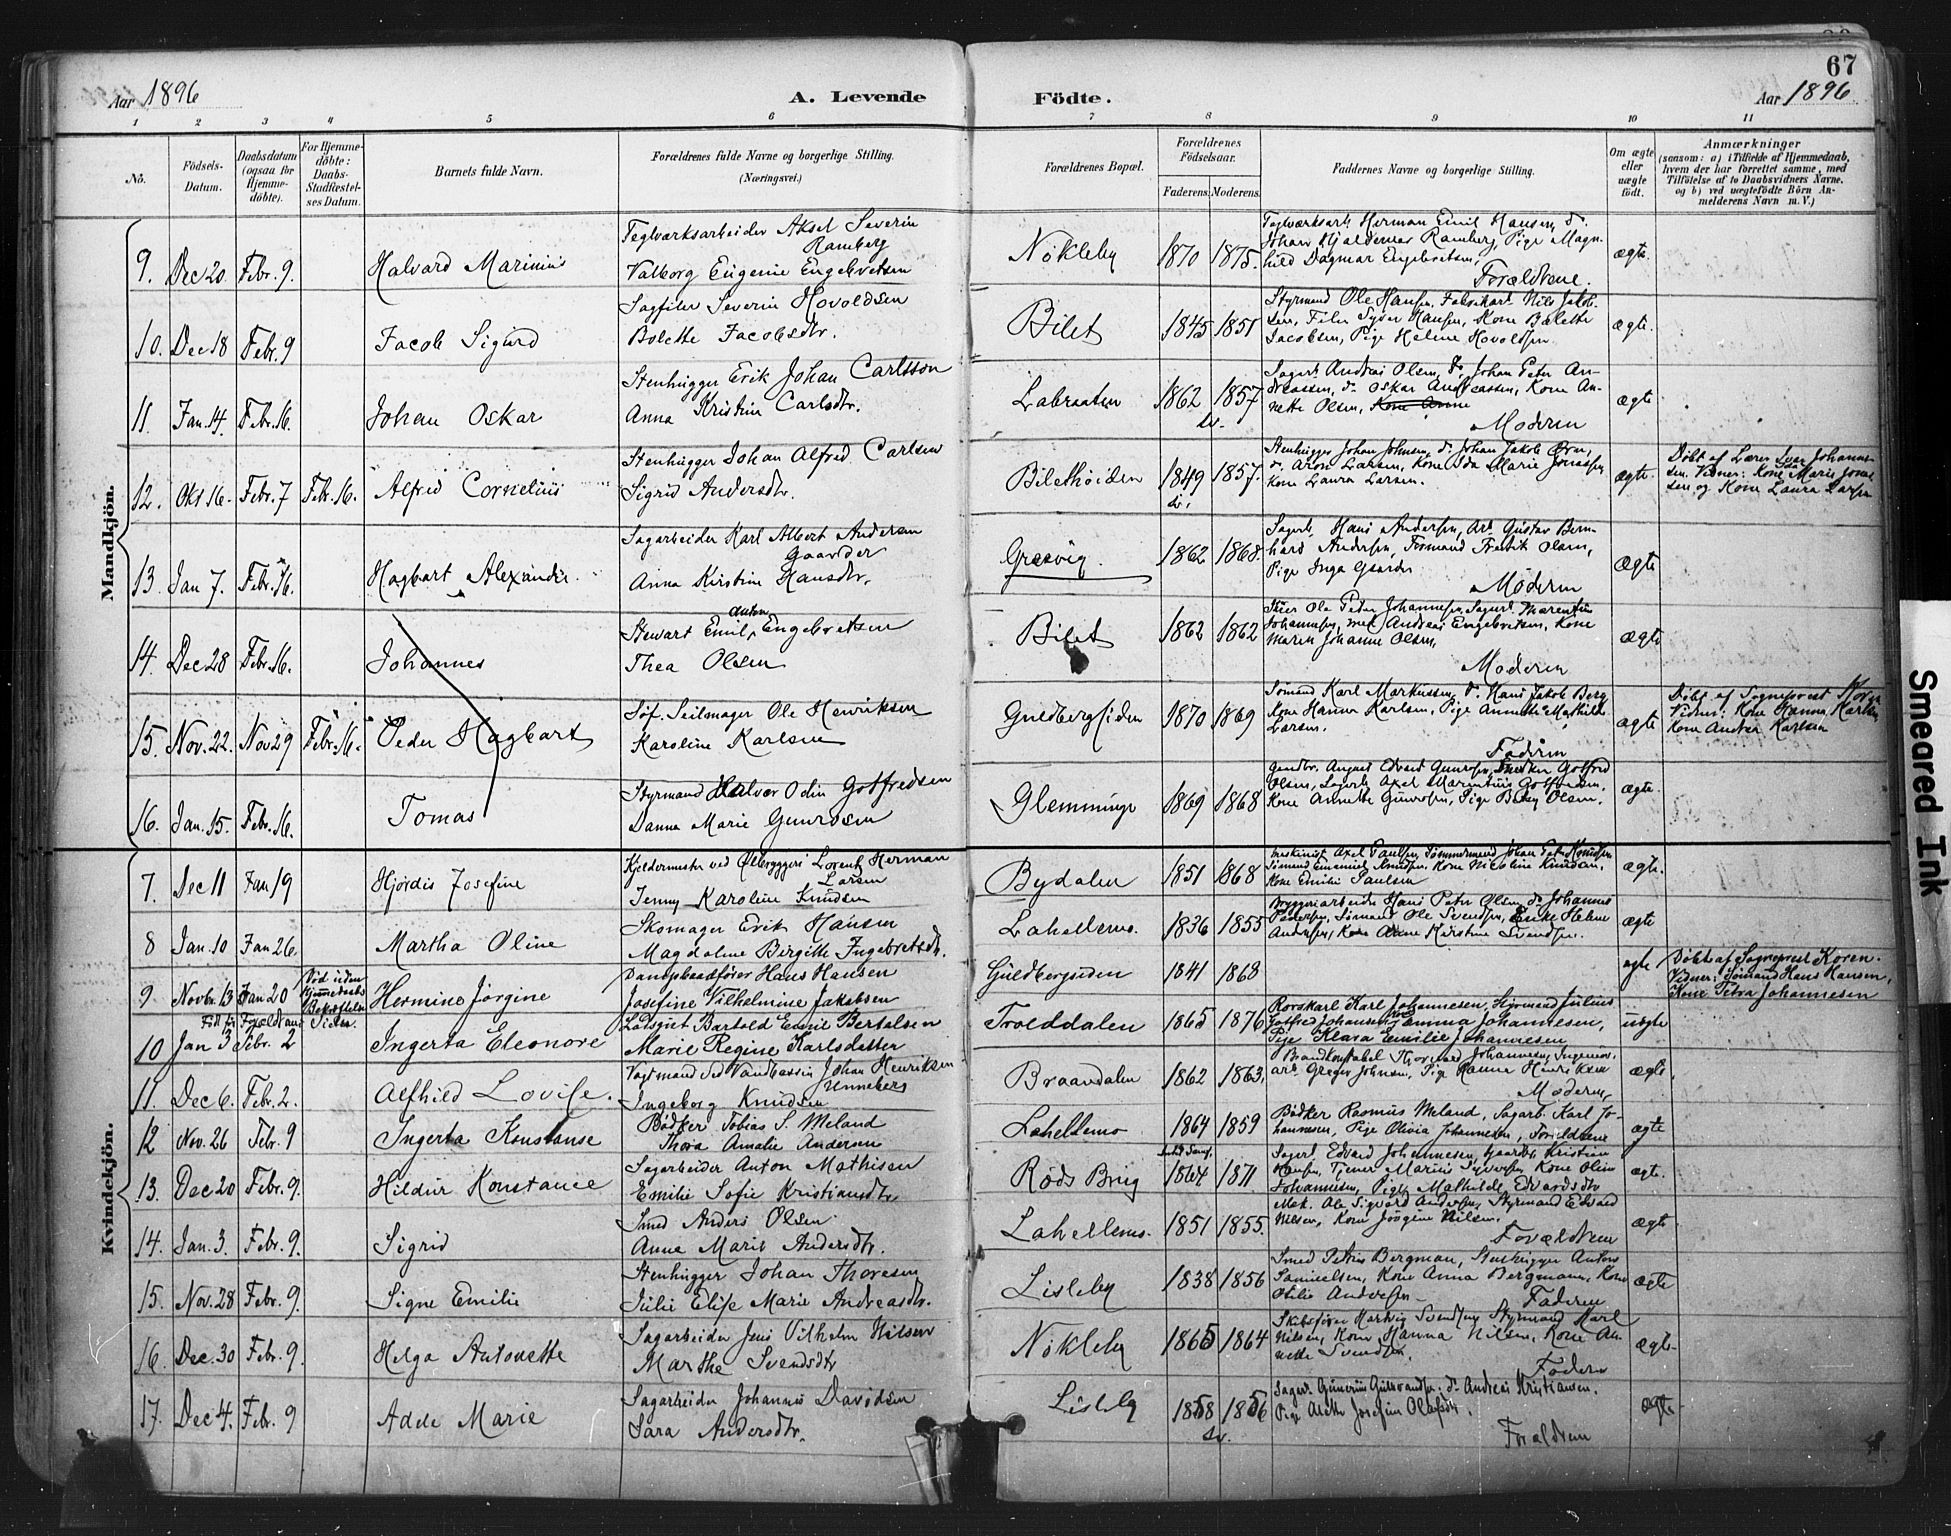 67
Aar 1896
A. Levende
Födte.
Aar 1896
1 2 3 4 5 6 7 8 9 10 11
No.
Födsels-Datum.
Daabsdatum (ogsaa for Hjemme-döbte).
For Hjemme-döbte: Daabs-Stadfæstel-ses Datum.
Barnets fulde Navn.
Forældrenes fulde Navne og borgerlige Stilling.
(Næringsvei.)
Forældrenes Bopæl.
Forældrenes Födselsaar.
Faderens. Moderens.
Faddernes Navne og borgerlige Stilling.
Om ægte eller uægte födt.
Anmærkninger
(saasom: a) i Tilfælde af Hjemmedaab, hvem der har forrettet samme, med Tilföielse af to Daabsvidners Navne, og b) ved uægtefödte Börn Anmelderens Navn m. V.)
Mandkjön.
9. Dec 20. Febr. 9. Halvard Marinius
Teglværksarbeider Aksel Severin Ramberg
Valborg Eugenie Engebretsen
Nökleby 1870 1875.
Teglværksarb. Herman Emil Hansen, do Johan Hjaldemar Ramberg, Pige Magnhild Dagmar Engebretsen,
Forældrene.
ægte.
10. Dec 18 Febr. 9 Jacob Sigurd
Sagfiler Severin Hovoldsen
Bolette Jacobsdtr.
Bilet 1845 1851
Styrmand Ole Hansen, Fabrikarb. Nils Jakobsen, Filer Syver Hansen, Kone Bolette Jacobsen, Pige Helene Hovoldsen
ægte.
11. Jan. 14. Febr. 16. Johan Oskar
Stenhugger Erik Johan Carlsson
Anna Kristin Carlsdtr.
Labraaten 1862 sv. 1857
Sagarb. Andreas Olsen, do Johan Peter Andreassen, do Oskar Andreassen, Kone Annette Olsen, Kone Anne
Moderen
ægte
12. Okt 16. Febr. 7 Febr. 16. Alfrid Cornelius
Stenhugger Johan Alfred Carlsen
Sigrid Andersdtr.
Bilethöiden 1849 sv. 1857.
Stenhugger Johan Johnsen, do Johan Jakob
do Aron Larsen, Kone Ida Marie Jonassen, Kone Laura Larsen.
ægte.
Döbt af Lærer Johannesen. Vidner: Kone Ida Marie Jonassen og Kone Laura Larsen
13. Jan 7. Febr. 16. Hagbart Alexander.
Sagarbeider Karl Albert Andersen Gaarder
Anna Kristine Hansdtr.
Gresvig. 1862 1868.
Sagarb. Hans Andersen, Arb. Gustav Bernhard Andersen, Formand Fredrik Olsen, Pige Inga Gaarder
Moderen
ægte
14. Dec 28 Febr. 16. Johannes
Stewart Emil Anton Engebretsen
Thea Olsen
Bilet 1862 1862
Ole Peder Johannesen, Sagarb. Marentius Johannesen, Andreas Engebretsen, Kone Maren Johanne Olsen,
Moderen
ægte
15. Nov. 22. Nov 29 Febr. 16. Peder Hagbart
Söf. Seilmager Ole Henriksen
Karoline Karlsen
Guldbergsiden 1870 1869
Sömand Karl Markussen, do Hans Jakob Berg, Kone Hanna Karlsen, Pige Annette Mathilde Larsen.
Faderen
ægte
Döbt af Sogneprest Koren
Vidner: Kone Hanna Karlsen
Kone Andrea Karlsen
16. Jan. 15. Febr. 16. Tomas
Styrmand Halvor Odin Gotfredsen
Danna Marie Gunrosen
Glemminge 1869 1868
August Edvard Gunrosen, Gotfred Olsen, Sagarb. Axel Marentius Gotfredsen, Kone Annette Gunrosen, Pige Betsy Olsen.
ægte.
Kvindekjön.
7. Dec 11 Jan 19 Hjördis Josefine
Kjeldermester ved Ölbryggeri Lorentz Herman Larsen
Jenny Karoline Knudsen
Bydalen 1851 1868
Maskinist Axel Paulsen, Tömmermand Johan Peter Knudsen, Sömand Emanuel Knudsen, Kone Nicoline Knudsen, Kone Emilie Paulsen
ægte.
8 Jan. 10 Jan 26. Martha Oline
Skomager Erik Hansen
Magdalene Birgitte Ingebretsdtr.
Lahellemo. 1836 1855
Bryggeriarbeider Hans Peter Olsen, do Johannes Pedersen, Sömand Ole Svendsen, Enke Helene Andersen, Kone Anne Kirstine Svendsen.
ægte
9 Novbr. 13 Jan 20 Död uden Hjemmedaabs Bekræftelse
Hermine Jörgine
Dampbaadförer Hans Hansen
Josefine Vilhelmine Jakobsen
Guldbergsiden 1841 1868
ægte
Döbt af Sogneprest Koren.
Vidner: Sömand Hans Hansen,
Kone Petra Johannesen
10 Jan 3 Febr. 2 Ingerta Eleonore
Lodsgut Bartold Emil Bertelsen
Marie Regine Karlsdatter
Trolddalen 1865 1876
Rorskarl Karl Johannesen, Styrmand Julius Gotfred Johansen, Kone Emma Johannesen, Pige Klara Emilie Johannesen
uægte
11. Dec 6. Febr. 2. Alfhild Lovise.
Vagtmand ved Vandbassin Johan Henriksen Unneberg
Ingeborg Knudsen
Braadalen 1862 1863,
Brandkonstabel Thorvard Johannesen, Ingeniörarb. Greger Johnsen, Pige Hanna Henriksen
Moderen
ægte.
12 Nov. 26 Febr 9 Ingerta Konstanse
Bödker Tobias S. Meland
Thora Amalie Andersen
Lahellemo 1864 1859
Bödker Rasmus Meland, Sagarb. Karl Johannesen, Pige Olivia Johannesen, Forældrene
ægte
13. Dec 20 Febr. 9. Hildur Konstance
Sagarbeider Anton Mathisen
Emilie Sofie Kristiansdtr
Röds Brug 1864 1871
Sagarb. Edvard Johannesen, Gaardb. Kristian Hansen, Tjener Marius Syversen, Kone Oline Johannesen, Pige Mathilde Edvardsdtr
ægte.
14. Jan. 3. Febr. 9. Sigrid
Smed Anders Olsen
Anne Marie Andersdtr.
Lahellemo. 1851 1855.
Mek. Ole Sigvard Andersen, Styrmand Edvard Nilsen, Kone Jörgine Nilsen.
Forældrene
ægte
15. Nov. 28 Febr. 9. Signe Emilie
Stenhugger Johan Thoresen
Julie Elise Marie Andreasdtr.
Lisleby 1838 1856
Smed Petrus Bergman, Stenhugger Anton Samuelsen, Kone Anna Bergmann, Kone Otilie Andresen
Faderen
ægte
16. Dec. 30 Febr. 9. Helga Antonette
Sagarbeider Jens Vilhelm Nilsen
Marthe Svendsdtr
Nökleby 1865 1864
Skibsförer Hartvig Svendsen, Styrmand Karl Nilsen, Kone Hanna Nilsen, Kone Annette Svendsen.
Faderen
ægte.
17. Dec 4. Febr. 9 Adele Marie
Sagarbeider Johannes Davidsen
Sara Andersdtr.
Lisleby 1858 sv. 1856
Sagarb. do Andreas Kristiansen.
Pige Alette Josefine Olafsdtr.
Forældrene
ægte
Smeared Ink